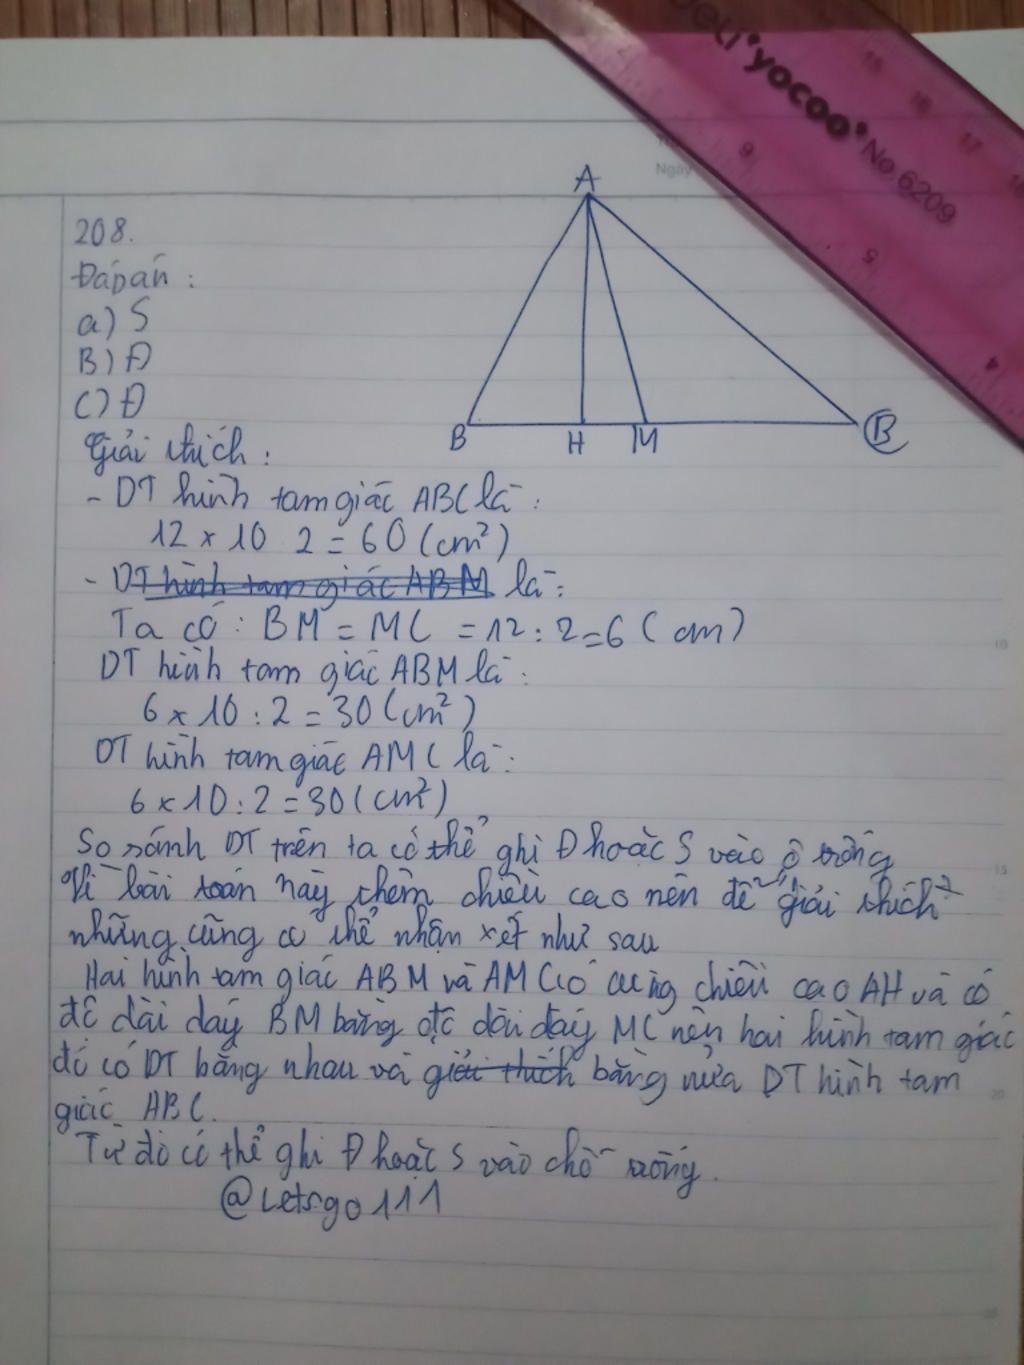 Deli yocoo No.6209
15 16 17
6 5 4
Ngày
A
208.
Đáp án :
a) S
B) Đ
C) Đ
B H M B
Giải thích :
- DT hình tam giác ABC là :
12 x 10 2 = 60 (cm²)
- DT hình tam giác ABM là :
Ta có : BM = MC = 12 : 2 = 6 (cm)
DT hình tam giác ABM là :
6 x 10 : 2 = 30 (cm²)
DT hình tam giác AMC là :
6 x 10 : 2 = 30 (cm²)
So sánh DT trên ta có thể ghi Đ hoặc S vào ô trống
Vì bài toán này thêm chiều cao nên để giải thích
những cũng có thể nhận xét như sau
Hai hình tam giác ABM và AMC có cùng chiều cao AH và có
độ dài đáy BM bằng độ dài đáy MC nên hai hình tam giác
đó có DT bằng nhau và giải thích bằng nửa DT hình tam
giác ABC.
Từ đó có thể ghi Đ hoặc S vào chỗ trống.
@Letsgo111
10
15
20
25